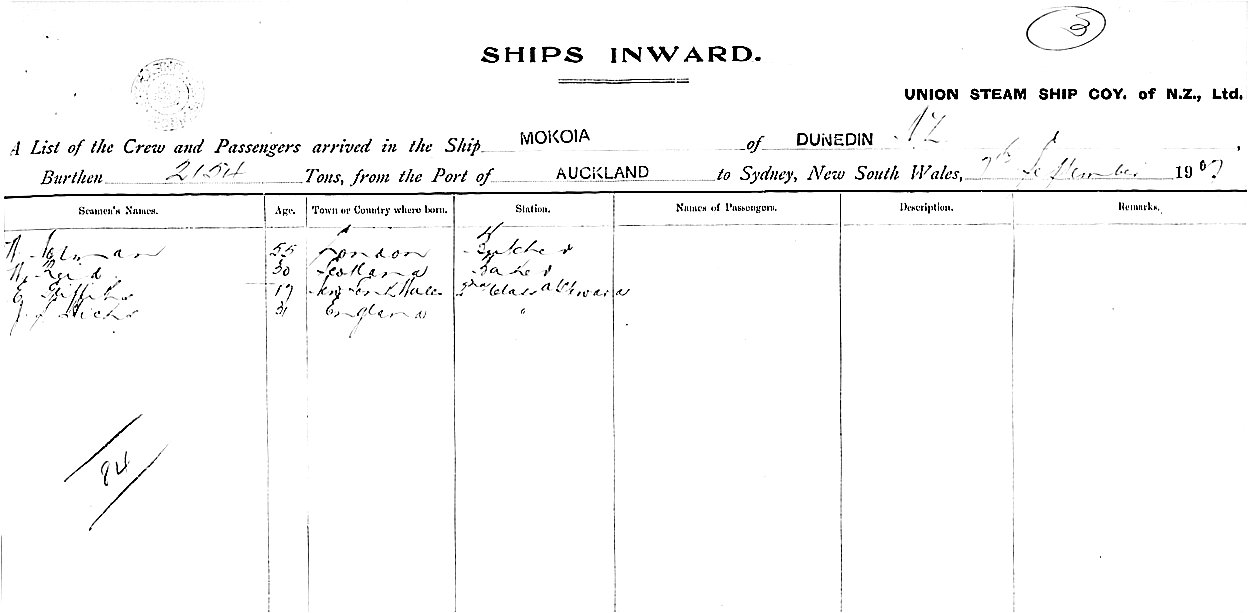 3
SHIPS INWARD.
UNION STEAM SHIP COY. of N.Z., Ltd.
A List of the Crew and Passengers arrived in the Ship MOKOIA of DUNEDIN NZ,
Burthen 2154 Tons, from the Port of AUCKLAND to Sydney, New South Wales, 7th September 1907
Seamen's Names. Age. Town or Country where born. Station. Names of Passengers. Description. Remarks.
55 London Butcher
30 Scotland Baker
E Griffiths 19 New South Wales 2nd Class Steward
J Hicks 31 England "
84